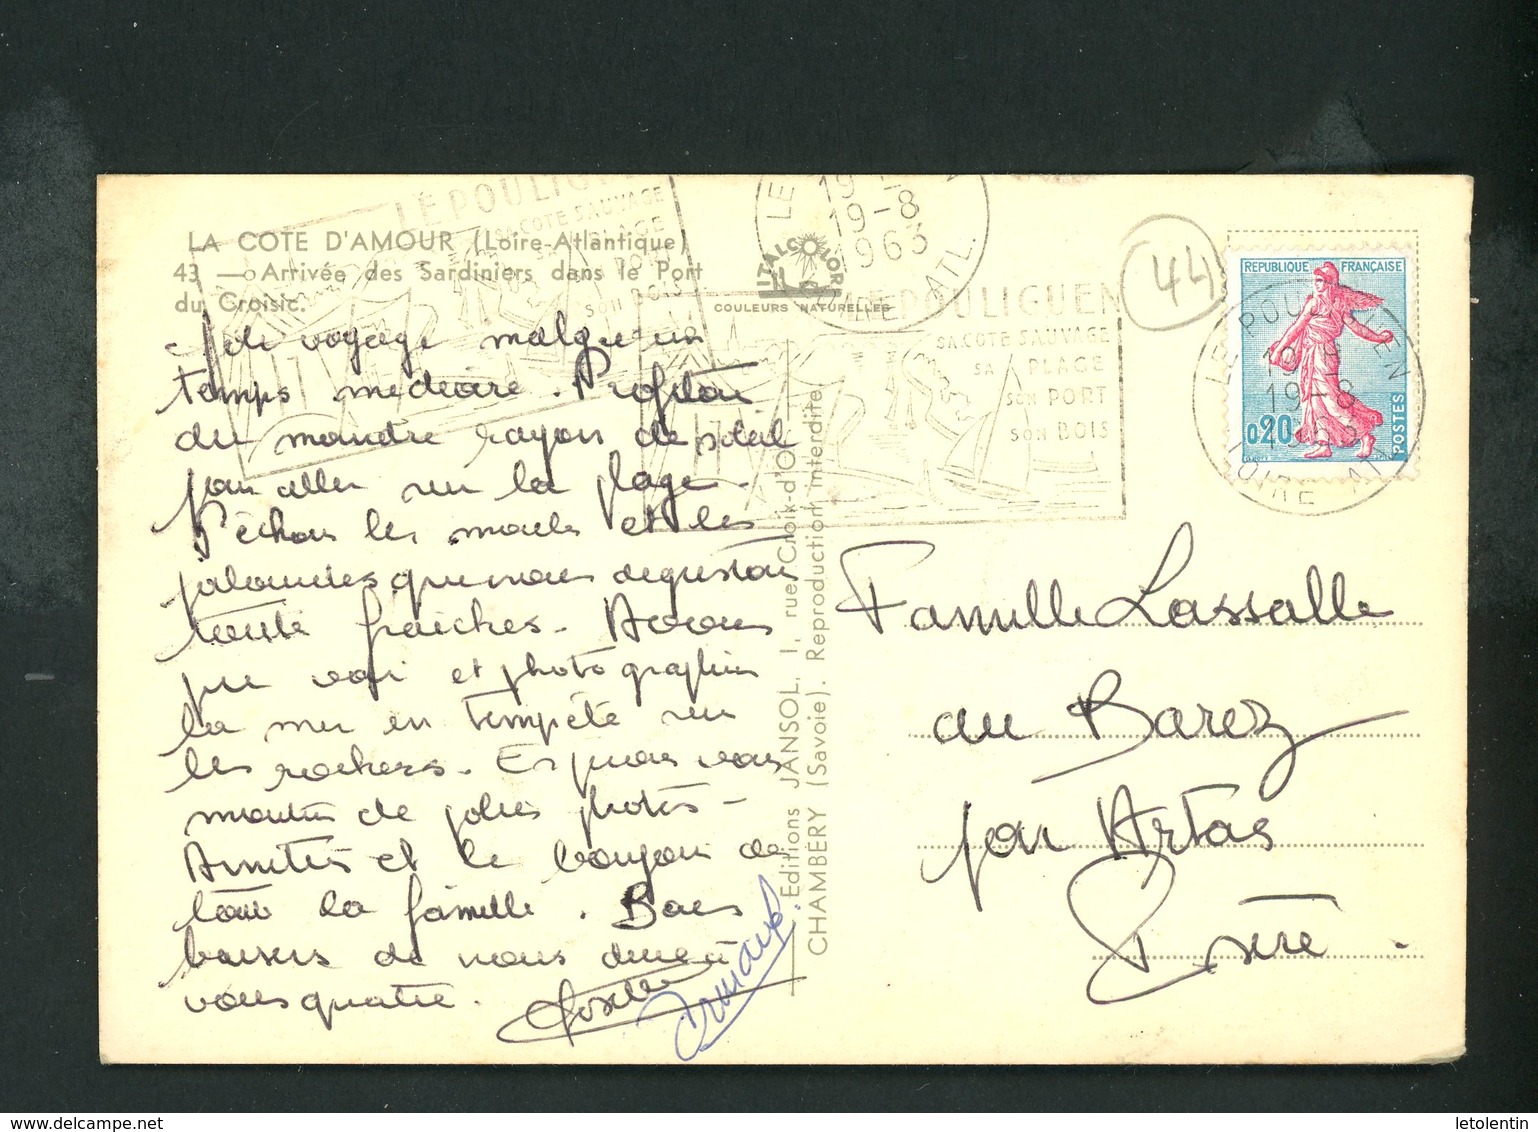 LE POULIGUEN
SA COTE SAUVAGE
LA COTE D'AMOUR (Loire-Atlantique)
43 — Arrivée des Sardiniers dans le Port
du Croisic.
ITALCOLOR
COULEURS NATURELLES
19-8
1963
LE POULIGUEN
SA COTE SAUVAGE
SA PLAGE
SON PORT
SON BOIS
44
REPUBLIQUE FRANÇAISE
0,20
POSTES
LE POULIGUEN
19-8
1963
LOIRE ATL.
Joli voyage malgré un
temps médiocre. Profitons
du moindre rayon de soleil
pour aller sur la plage.
Pêchons les moules et les
palourdes que nous dégustons
toute fraîches. Avons
pu voir et photographier
la mer en tempête sur
les rochers. Espérons vous
montrer de jolies photos –
Amitiés et le bonjour de
toute la famille. Bons
baisers de nous deux à
vous quatre. Josette
Armand.
Editions JANSOL, 1, rue Croix-d'Or
CHAMBÉRY (Savoie). Reproduction interdite.
Famille Lassalle
au Barez
par Artas
Isère.
letolentin